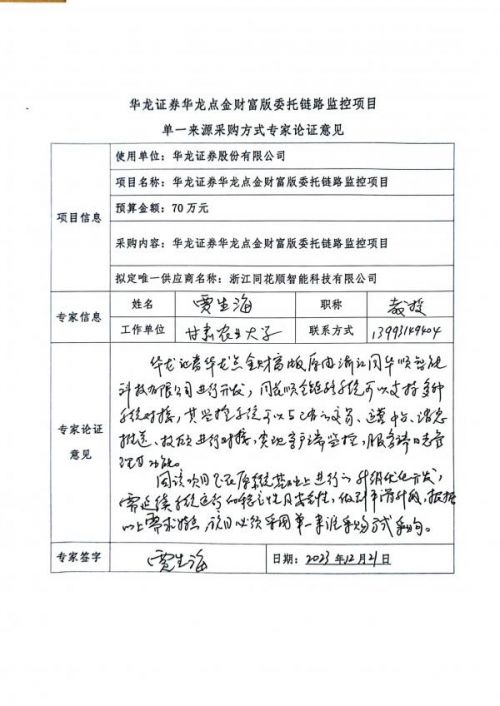 华龙证券华龙点金财富版委托链路监控项目
单一来源采购方式专家论证意见
项目信息
使用单位：华龙证券股份有限公司
项目名称：华龙证券华龙点金财富版委托链路监控项目
预算金额：70万元
采购内容：华龙证券华龙点金财富版委托链路监控项目
拟定唯一供应商名称：浙江同花顺智能科技有限公司
专家信息
姓名 贾生海 职称 教授
工作单位 甘肃农业大学 联系方式 13993149404
专家论证
意见
华龙证券华龙点金财富版原由浙江同花顺智能
科技有限公司进行开发，同花顺全链路系统可以支持多种
系统对接，其监控系统可以与已有的交易、运营中台、消息
推送、投顾进行对接，实现客户端监控，服务端日志管
理等功能。
因该项目是在原系统基础上进行的升级优化开发，
需延续系统运行的稳定性及安全性，做到平滑升级，根据
以上需求特点 该项目必须采用单一来源采购方式采购。
专家签字 贾生海 日期：2023年12月21日